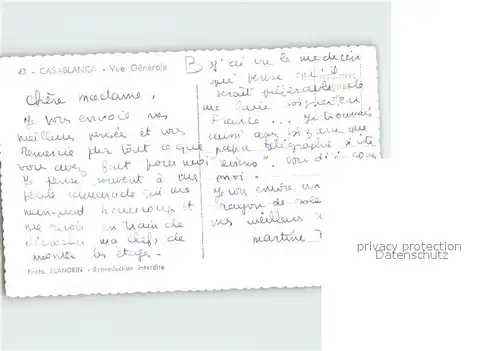 43 - CASABLANCA - Vue Générale
chère madame,
Je vous envoie mes
meilleures pensées et vous
remercie pour tout ce que
vous avez fait pour moi
Je pense souvent à vous
petite camarade qui me
manquent beaucoup et
me vois en train de
décrocher ma clef, de
monter les étages.
Photo FLANDRIN - Reproduction interdite
B J'ai vu le medecin
qui pense qu'il
serait préférable de
me faire soigner en
France ... Je trouvais
aussi assez bizarre que
papa télégraphie si vite
moi.
Je vous envoie un
rayon de soleil
mes meilleurs
martine
privacy protection
Datenschutz